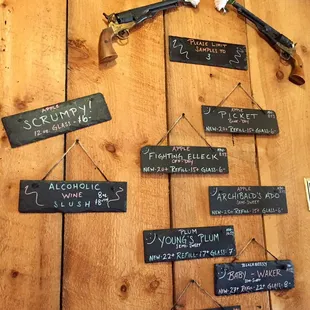 PLEASE LIMIT
SAMPLES TO
3
APPLE
SCRUMPY!
12 OZ GLASS - 6-
ALCOHOLIC
WINE
SLUSH
8 oz
APPLE
PICKET
SEMI-DRY
NEW-20+ REFILL-15+ GLASS-6-
APPLE
FIGHTING ELLECK
OFF-DRY
NEW-20+ REFILL-15+ GLASS-6-
APPLE
ARCHIBALD'S ADO
SEMI-SWEET
NEW-20+ REFILL-15+ GLASS-6-
PLUM
YOUNG'S PLUM
SEMI-SWEET
NEW-22+ REFILL-17+ GLASS-7
BLACKBERRY
BABY-WAKER
NEW-23+ REFILL-18+ GLASS-8-